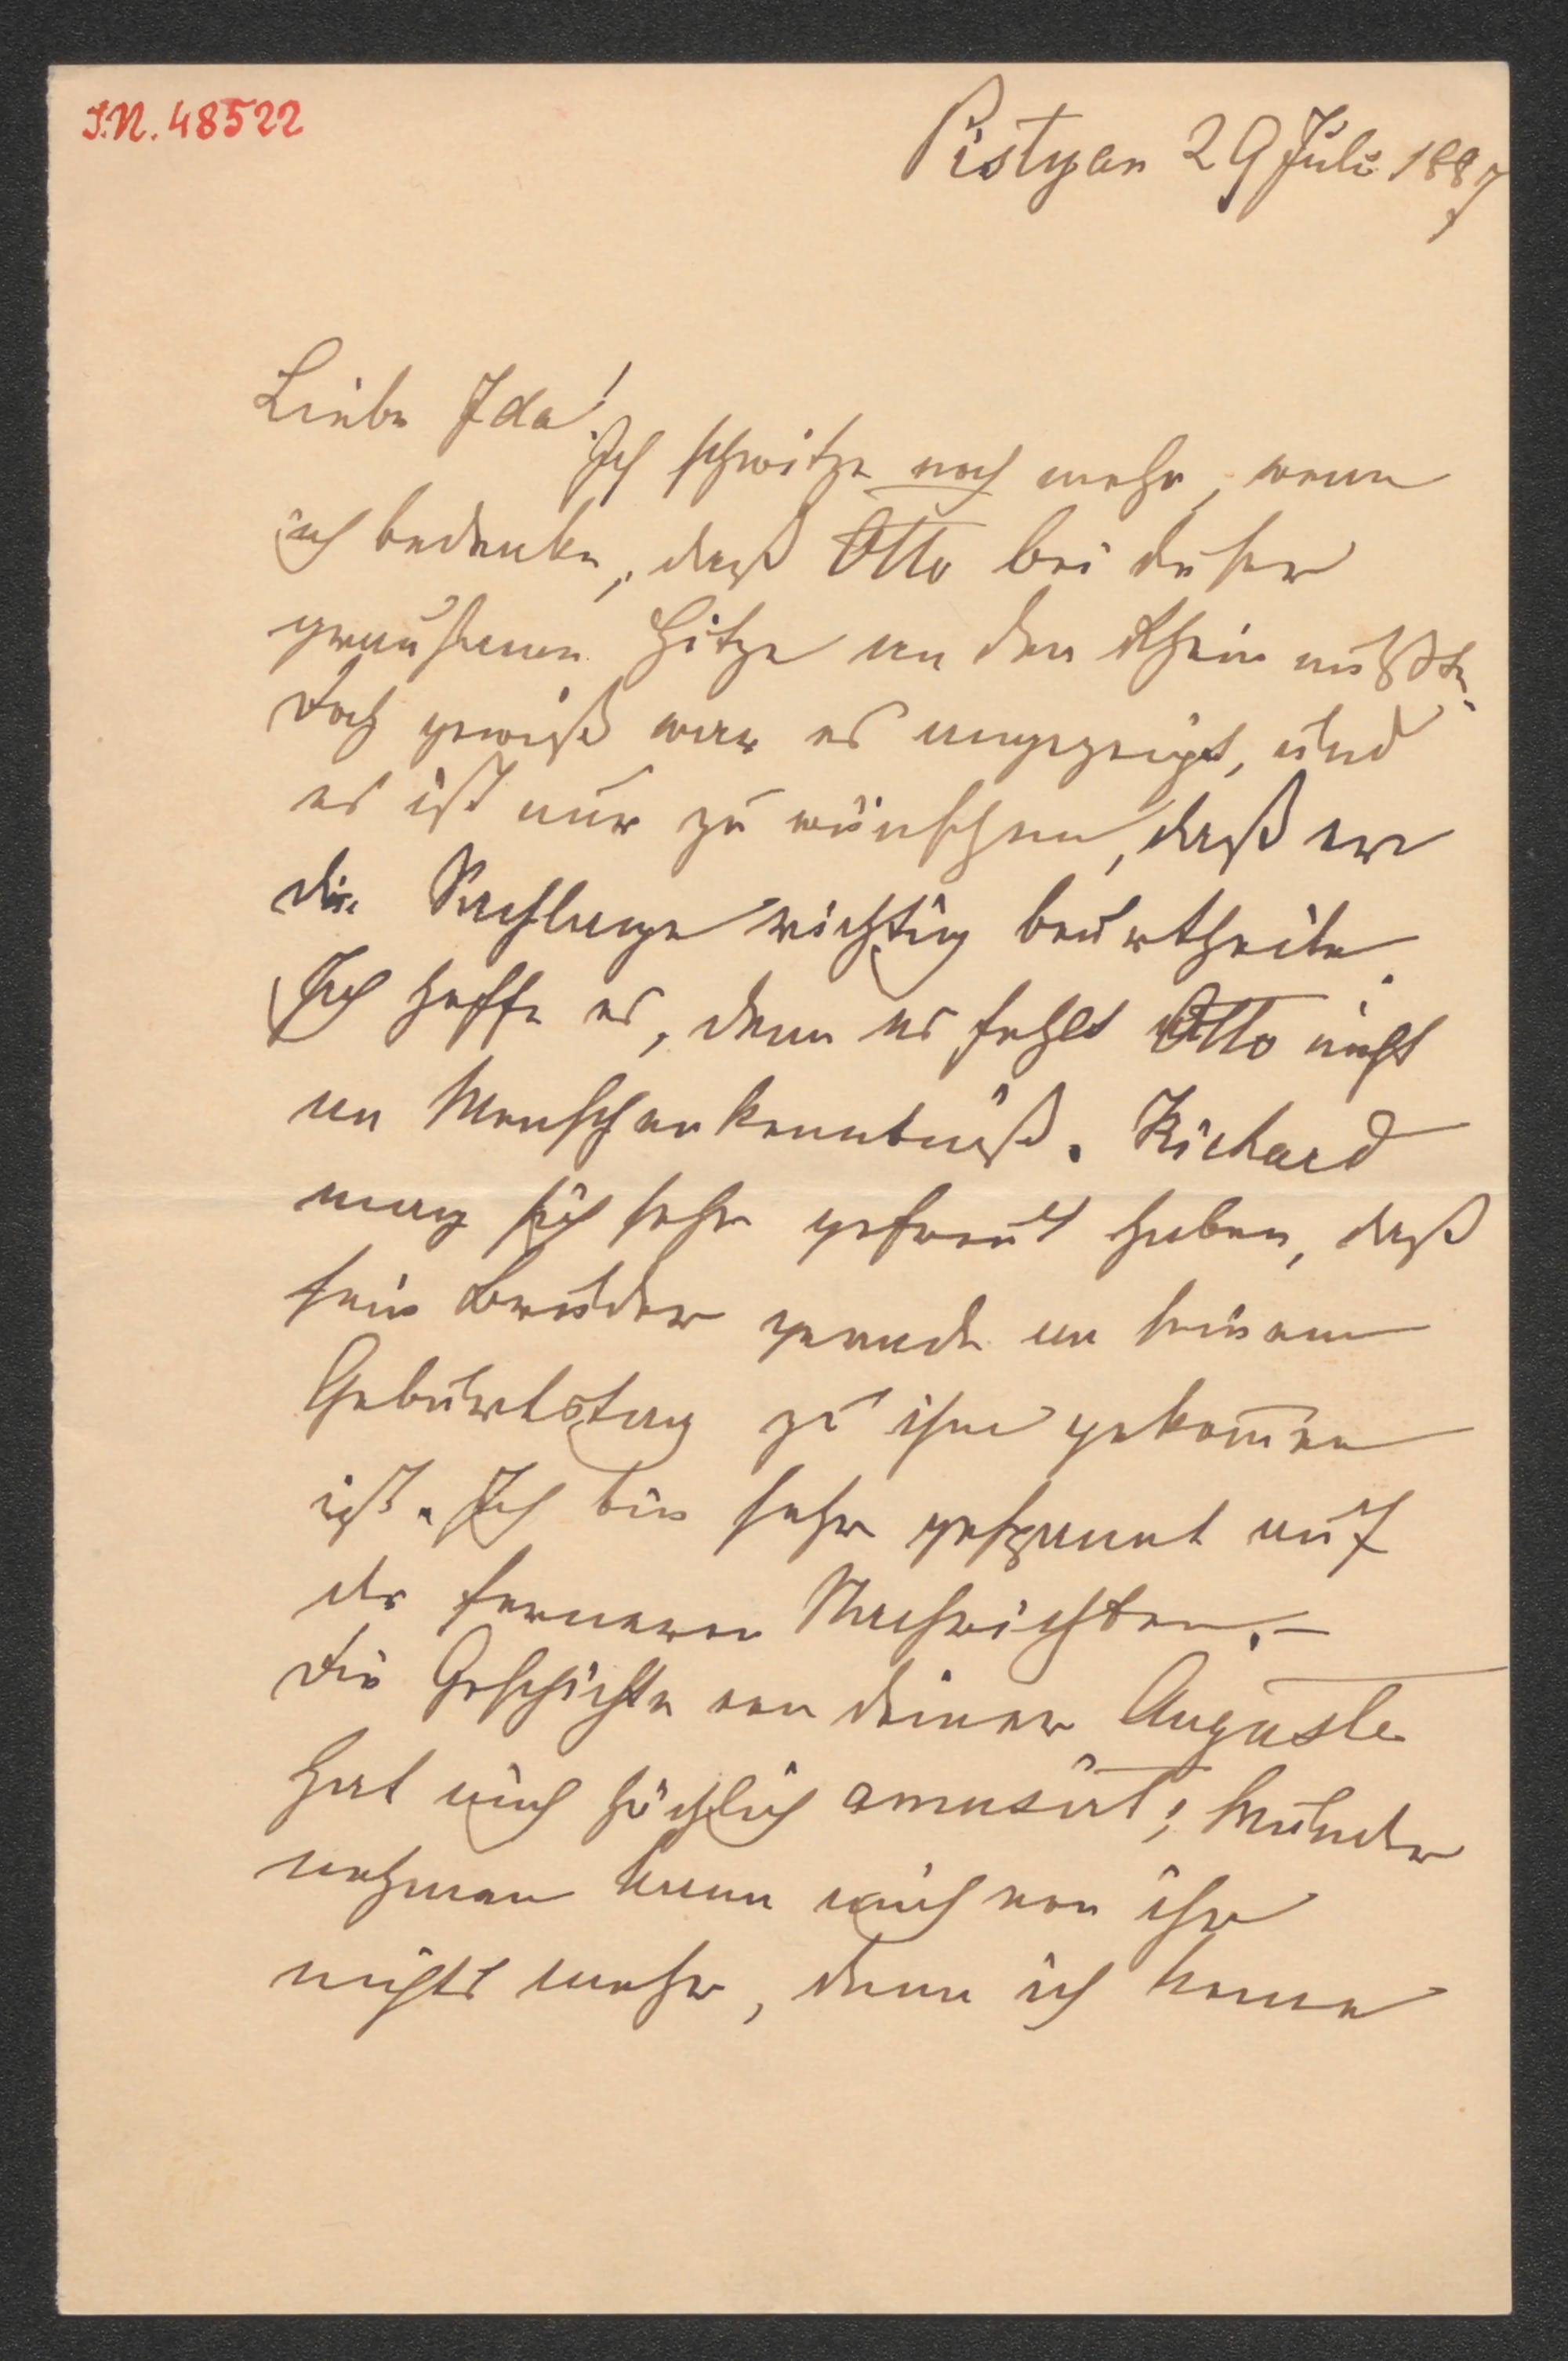 I.N. 48522
Pistyan 29 Juli 1887
Liebe Ida!
Ich schwitze noch mehr, wenn
ich bedenke, daß Otto bei dieser
grausamen Hitze an den Rhein mußte.
Doch gewiß war es angezeigt, und
es ist nur zu wünschen, daß er
die Sachlage richtig beurtheile.
Ich hoffe es, denn es fehlt Otto nicht
an Menschenkenntniß. Richard
mag sich sehr gefreut haben, daß
sein Bruder gerade an seinem
Geburtstag zu ihm gekom̄en
ist. Ich bin sehr gespannt auf
die ferneren Nachrichten. –
Die Geschichte von deiner Auguste
hat mich höchlich amusirt;
nehmen kann mich von ihr
nichts mehr, denn ich kenne